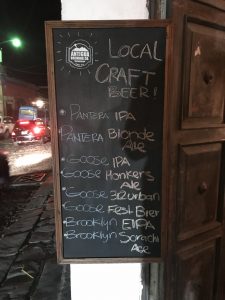 ANTIGUA
LOCAL
CRAFT
BEER!
PANTERA IPA
PANTERA Blonde
Ale
Goose IPA
Goose Honkers
Ale
Goose 312urban
Goose Fest Bier
Brooklyn EIPA
Brooklyn Sorachi
Ace